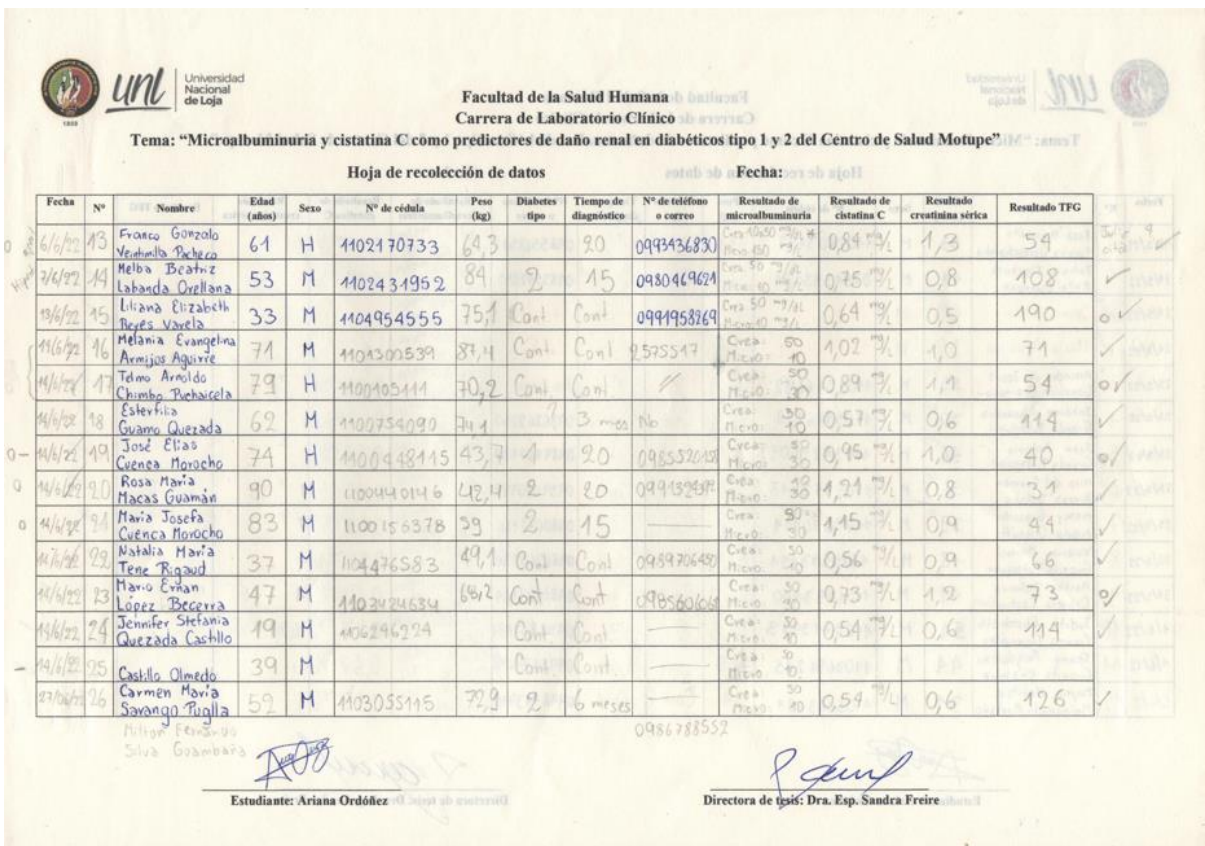 unl Universidad Nacional de Loja
1859
Facultad de la Salud Humana
Carrera de Laboratorio Clínico
Tema: “Microalbuminuria y cistatina C como predictores de daño renal en diabéticos tipo 1 y 2 del Centro de Salud Motupe”
Hoja de recolección de datos Fecha:
Fecha Nº Nombre Edad (años) Sexo Nº de cédula Peso (kg) Diabetes tipo Tiempo de diagnóstico Nº de teléfono o correo Resultado de microalbuminuria Resultado de cistatina C Resultado creatinina sérica Resultado TFG
6/6/22 13 Franco Gonzalo Veintimilla Pacheco 61 H 1102170733 64,3 20 0993436830 0,84 mg/L 1,3 54
7/6/22 14 Melba Beatriz Labanda Orellana 53 M 1102431952 84 2 15 0980469621 Crea 50 mg/dL Micro: 10 mg/L 0,75 mg/L 0,8 108
13/6/22 15 Liliana Elizabeth Reyes Varela 33 M 1104954555 75,1 Cont. Cont. 0991958269 Crea 50 mg/dL Micro: 10 mg/L 0,64 mg/L 0,5 190
14/6/22 16 Melania Evangelina Armijos Aguirre 71 M 1101302539 87,4 Cont. Cont 2575517 Crea: 50 Micro: 10 1,02 mg/L 1,0 71
14/6/22 17 Telmo Arnoldo Chimbo Puchaicela 79 H 1100103111 70,2 Cont. Cont. Crea: 50 Micro: 30 0,89 mg/L 1,1 54
14/6/22 18 Esterfilia Guamo Quezada 62 M 1100754090 74,1 3 mes No Crea: Micro: 10 0,57 mg/L 0,6 114
14/6/22 19 José Elias Cuenca Morocho 74 H 1100448115 43,7 1 20 Crea: 50 Micro: 30 0,95 mg/L 1,0 40
14/6/22 20 Rosa María Macas Guamán 90 M 1100440146 42,4 2 20 Crea: Micro: 30 1,21 mg/L 0,8 31
14/6/22 21 María Josefa Cuenca Morocho 83 M 1100156378 59 2 15 Crea: 50 Micro: 30 1,15 mg/L 0,9 44
14/6/22 22 Natalia María Tene Rigaud 37 M 1104476583 49,1 Cont Cont 0989706450 Crea: 50 Micro: 10 0,56 mg/L 0,9 66
14/6/22 23 Mario Ernan López Becerra 47 M 1103424634 68,2 Cont Cont Crea: 50 Micro: 30 0,73 mg/L 1,2 73
14/6/22 24 Jennifer Stefania Quezada Castillo 19 M 1106246224 Cont. Cont. Crea: 50 Micro: 10 0,54 mg/L 0,6 114
14/6/22 25 Castillo Olmedo 39 M Cont. Cont. Crea: 50 Micro: 10
27/06/22 26 Carmen María Sarango Puglla 52 M 1103055115 72,9 2 6 meses Crea: 50 Micro: 10 0,54 mg/L 0,6 126
Silva Guambaña 0986788552
Estudiante: Ariana Ordóñez Directora de tesis: Dra. Esp. Sandra Freire